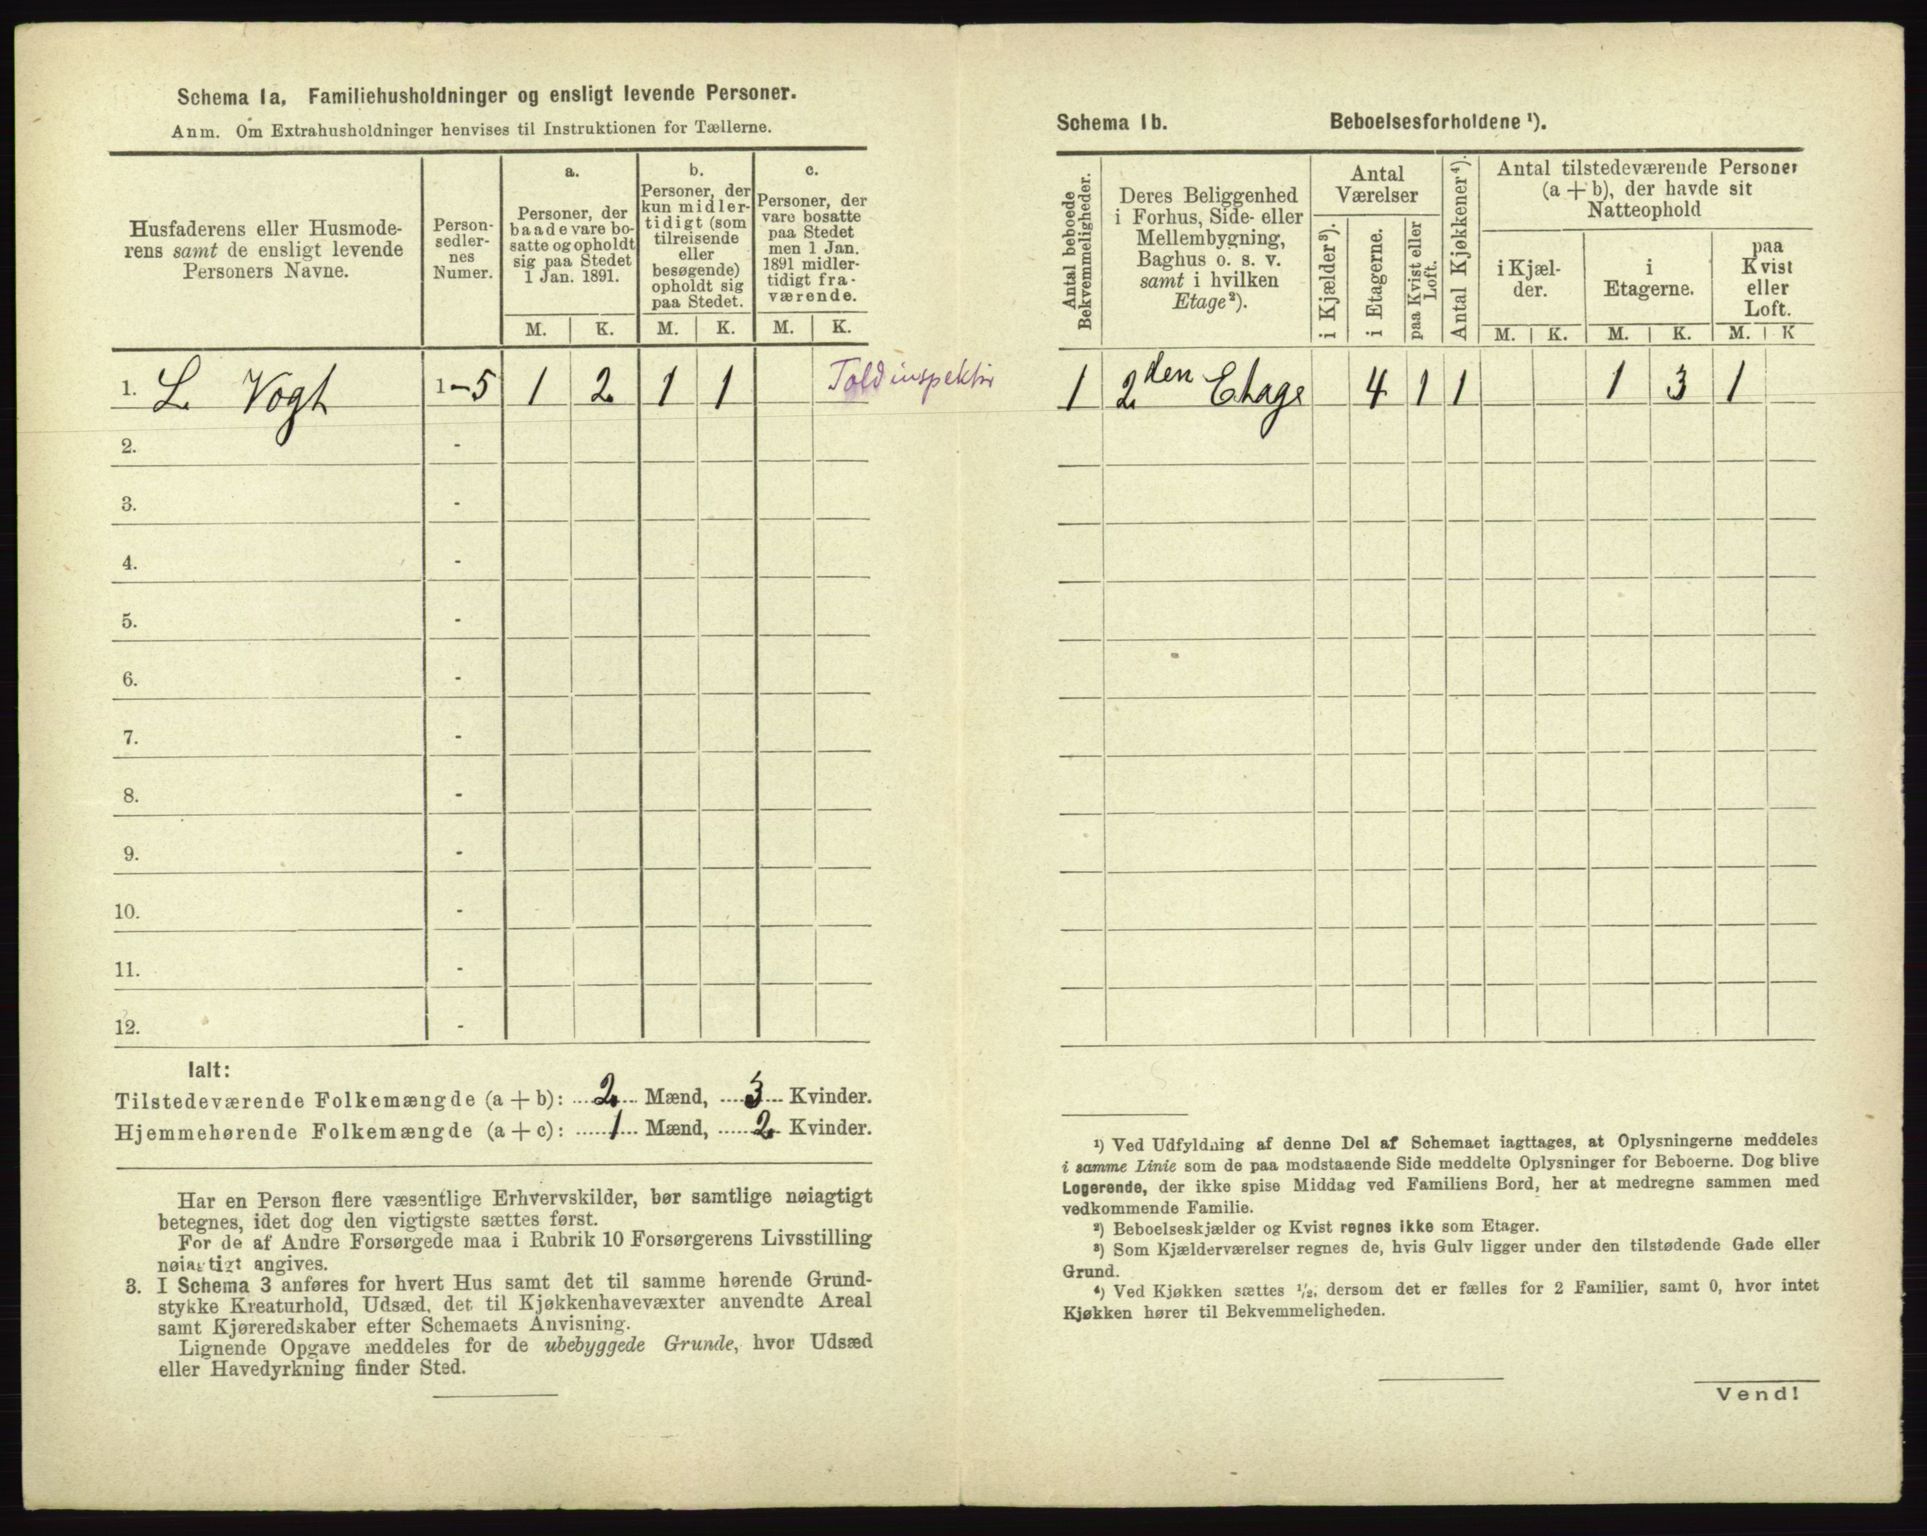 Schema 1a, Familiehusholdninger og ensligt levende Personer.
Anm. Om Extrahusholdninger henvises til Instruktionen for Tællerne.
Husfaderens eller Husmoderens samt de ensligt levende Personers Navne.
Personsedlernes Numer.
a.
Personer, der
baade vare bo-
satte og opholdt
sig paa Stedet
1 Jan. 1891.
b.
Personer, der
kun midler-
tidigt (som
tilreisende
eller
besøgende)
opholdt sig
paa Stedet.
c.
Personer, der
vare bosatte
paa Stedet
men 1 Jan.
1891 midler-
tidigt fra-
værende.
M. K. M. K. M. K.
1. L. Vogt 1-5 1 2 1 1 Toldinspektør
2. -
3. -
4. -
5. -
6. -
7. -
8. -
9. -
10. -
11. -
12. -
Ialt:
Tilstedeværende Folkemængde (a + b): 2 Mænd, 3 Kvinder.
Hjemmehørende Folkemængde (a + c): 1 Mænd, 2 Kvinder.
Har en Person flere væsentlige Erhvervskilder, bør samtlige nøiagtigt
betegnes, idet dog den vigtigste sættes først.
For de af Andre Forsørgede maa i Rubrik 10 Forsørgerens Livsstilling
nøiagtigt angives.
3. I Schema 3 anføres for hvert Hus samt det til samme hørende Grund-
stykke Kreaturhold, Udsæd, det til Kjøkkenhavevæxter anvendte Areal
samt Kjøreredskaber efter Schemaets Anvisning.
Lignende Opgave meddeles for de ubebyggede Grunde, hvor Udsæd
eller Havedyrkning finder Sted.
Schema 1b. Beboelsesforholdene ¹).
Antal beboede
Bekvemmeligheder.
Deres Beliggenhed
i Forhus, Side- eller
Mellembygning,
Baghus o. s. v.
samt i hvilken
Etage²).
Antal
Værelser
i Kjælder³).
i Etagerne.
paa Kvist eller
Loft.
Antal Kjøkkener⁴).
Antal tilstedeværende Personer
(a + b), der havde sit
Natteophold
i Kjæl-
der.
i
Etagerne.
paa
Kvist
eller
Loft.
M. K. M. K. M. K
1 2den Etage 4 1 1 1 3 1
¹) Ved Udfyldning af denne Del af Schemaet iagttages, at Oplysningerne meddeles
i samme Linie som de paa modstaaende Side meddelte Oplysninger for Beboerne. Dog blive
Logerende, der ikke spise Middag ved Familiens Bord, her at medregne sammen med
vedkommende Familie.
²) Beboelseskjælder og Kvist regnes ikke som Etager.
³) Som Kjælderværelser regnes de, hvis Gulv ligger under den tilstødende Gade eller
Grund.
⁴) Ved Kjøkken sættes ½, dersom det er fælles for 2 Familier, samt 0, hvor intet
Kjøkken hører til Bekvemmeligheden.
Vend!